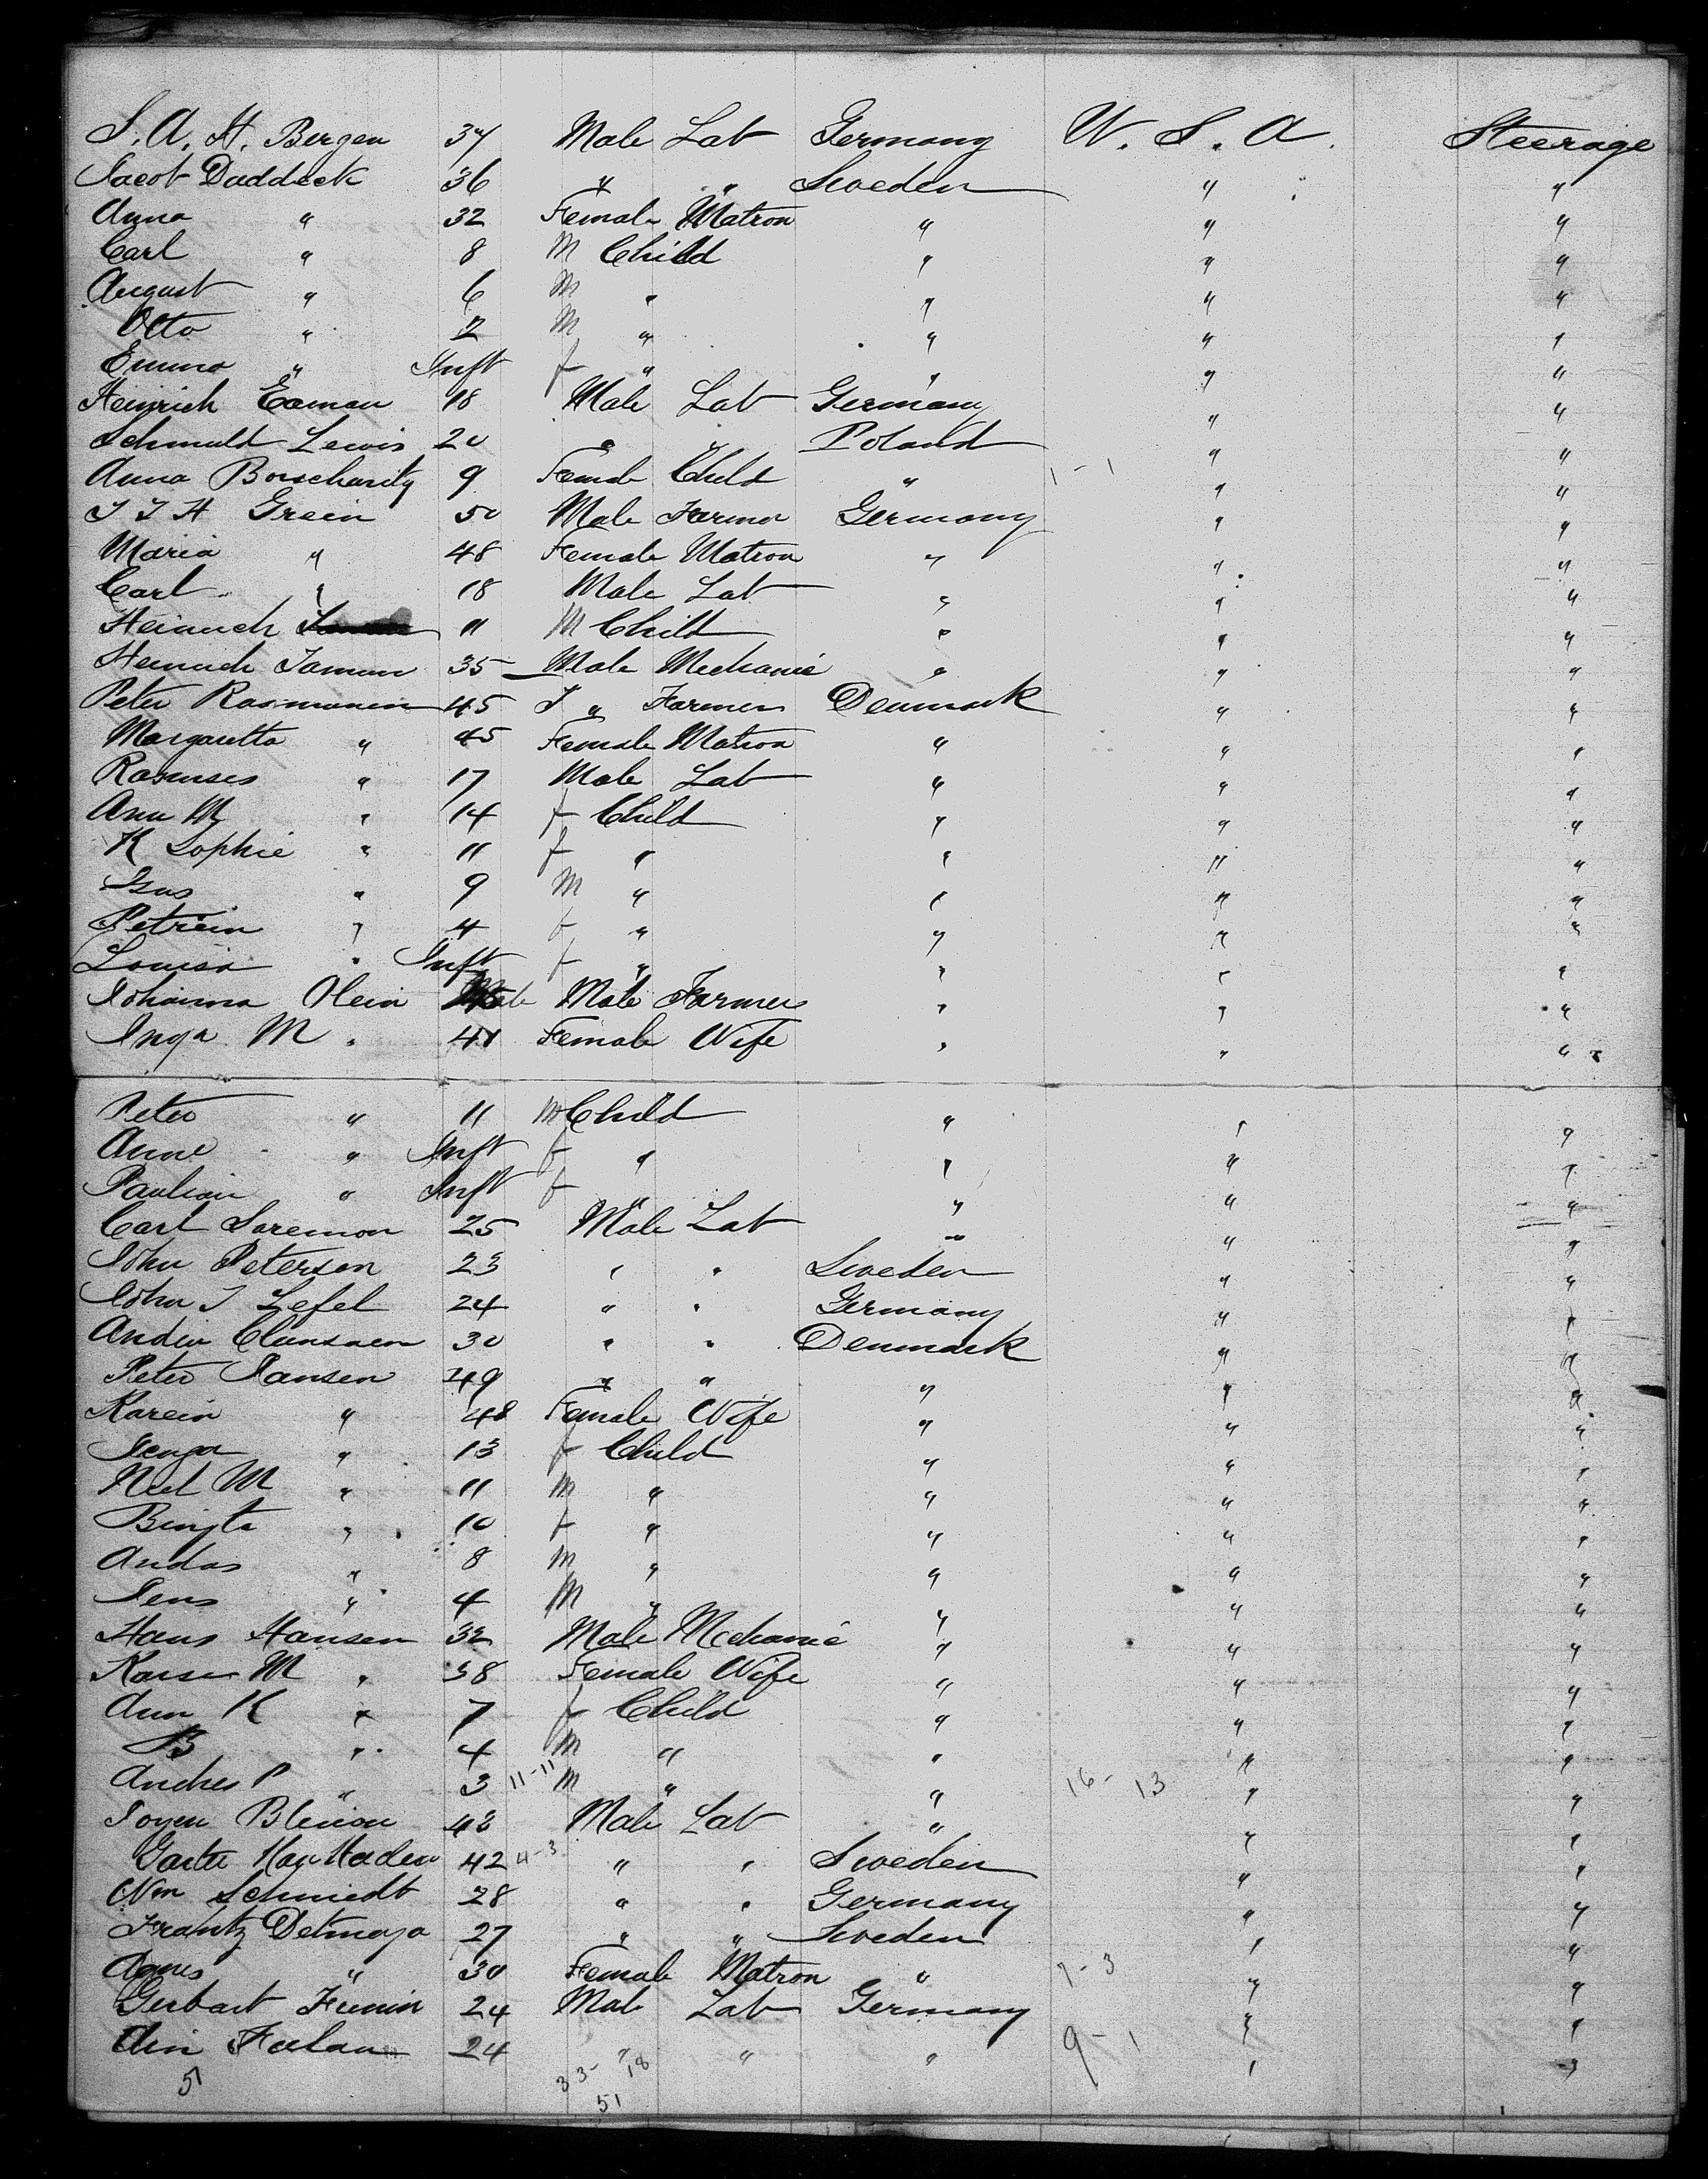 S. A. H. Bergen 34 Male Lab Germany U. S. A. Steerage
Jacob Daddeck 36 " " Sweden " "
Anna " 32 Female Matron " " "
Carl " 8 M Child " " "
August " 6 M " " " "
Otto " 2 M " " " "
Emma " Inft f " " " "
Heinrich Eaman 18 Male Lab Germany " "
Schmuld Lewis 20 " " Poland " "
Anna Borscharity 9 Female Child " 1-1 " "
J J H Grein 50 Male Farmer Germany " "
Maria " 48 Female Matron " " "
Carl " 18 Male Lab " " "
Heinrich 11 M Child " " "
Heinrich Taman 35 Male Mechanic " " "
Peter Rasmussen 45 " Farmer Denmark " "
Margaretta " 45 Female Matron " " "
Rasmuses " 17 Male Lab " " "
Ann M " 14 f Child " " "
K Sophie " 11 f " " " "
" 9 M " " " "
Petrein " 4 f " " " "
Louisa " Inft f " " " "
Johanna Olein Male Farmer " " "
Inga M " 41 Female Wife " " "
Peter " 11 M Child " " "
Anne " Inft f " " " "
Paulin " Inft f " " " "
Carl Soremon 25 Male Lab " " "
John Peterson 23 " " Sweden " "
John J Lefel 24 " " Germany " "
Andru Clunsaen 30 " " Denmark " "
Peter Hansen 49 " " " " "
Karein " 48 Female Wife " " "
" 13 f Child " " "
Niel M " 11 M " " " "
Bingta " 10 f " " " "
Andas " 8 M " " " "
Jens " 4 M " " " "
Hans Hansen 32 Male Mechanic " " "
Karse M " 38 Female Wife " " "
Ann K " 7 f Child " " "
B " 4 M " " " "
Andres P " 3 11-11 M " " 16-13 " "
Blinon 43 Male Lab " " "
42 4-3 " " Sweden " "
Wm Schmiedt 28 " " Germany " "
Frantz Detmaja 27 " " Sweden " "
Agnes " 30 Female Matron " 7-3 " "
Gerbart Frimin 24 Male Lab Germany " "
Feelan 24 " " " 9-1 " "
51 33-18
51